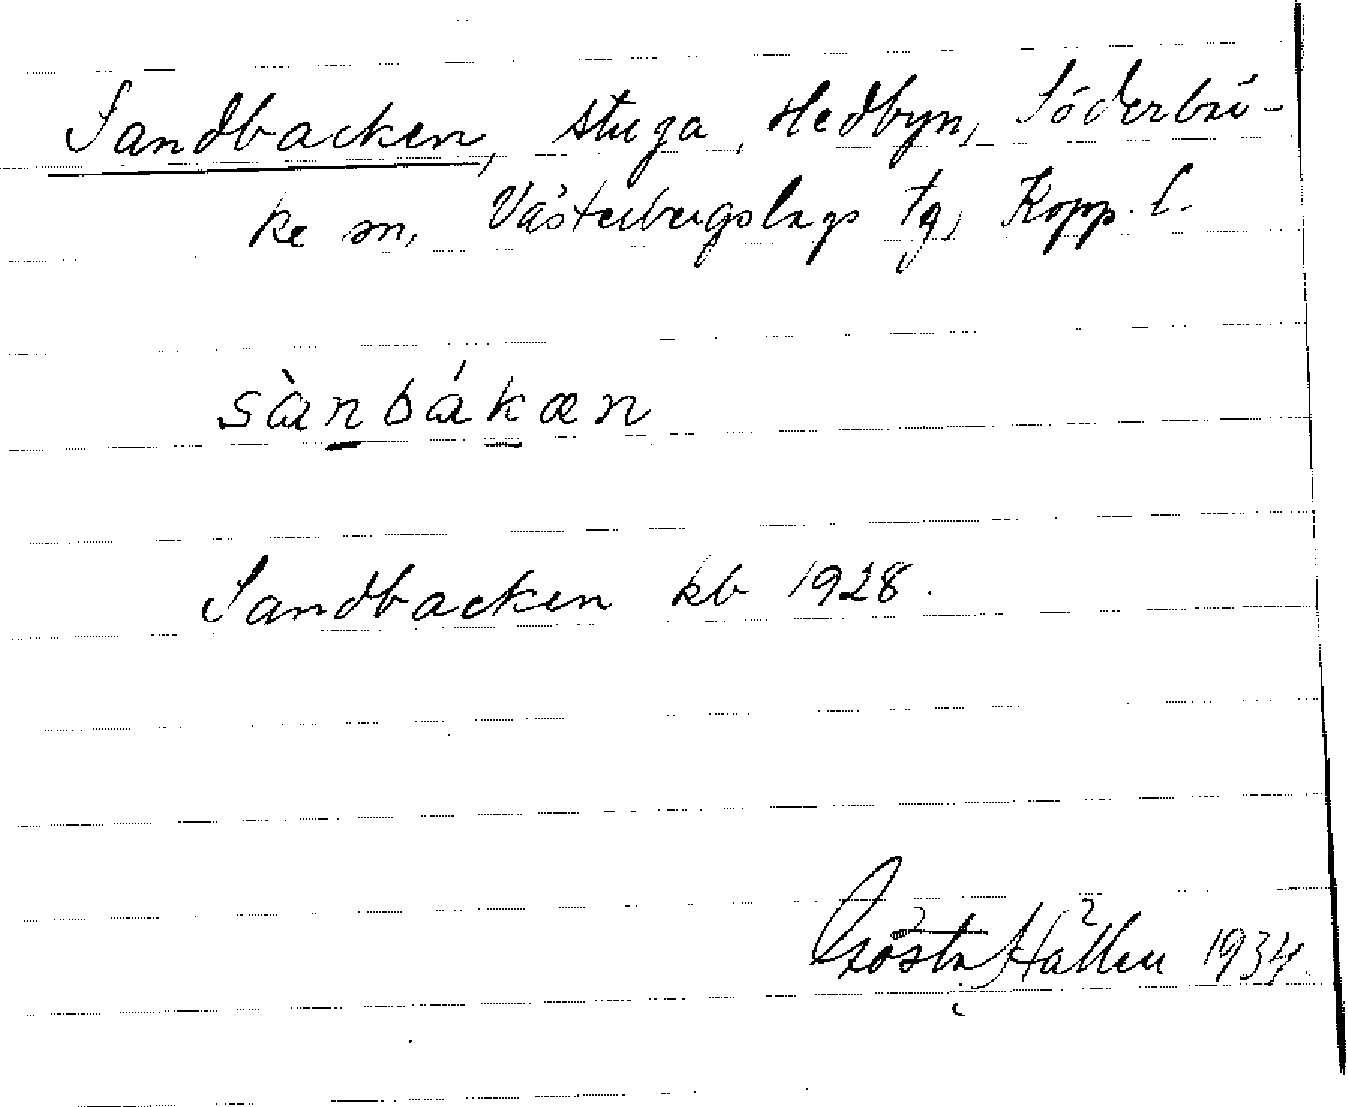 Sandbacken, stuga, Hedbyn, Söderbär-
ke sn, Västerbergslags tg, Kopp. l.
sànbákæn
Sandbacken kb 1928.
Gösta Hällen 1934.